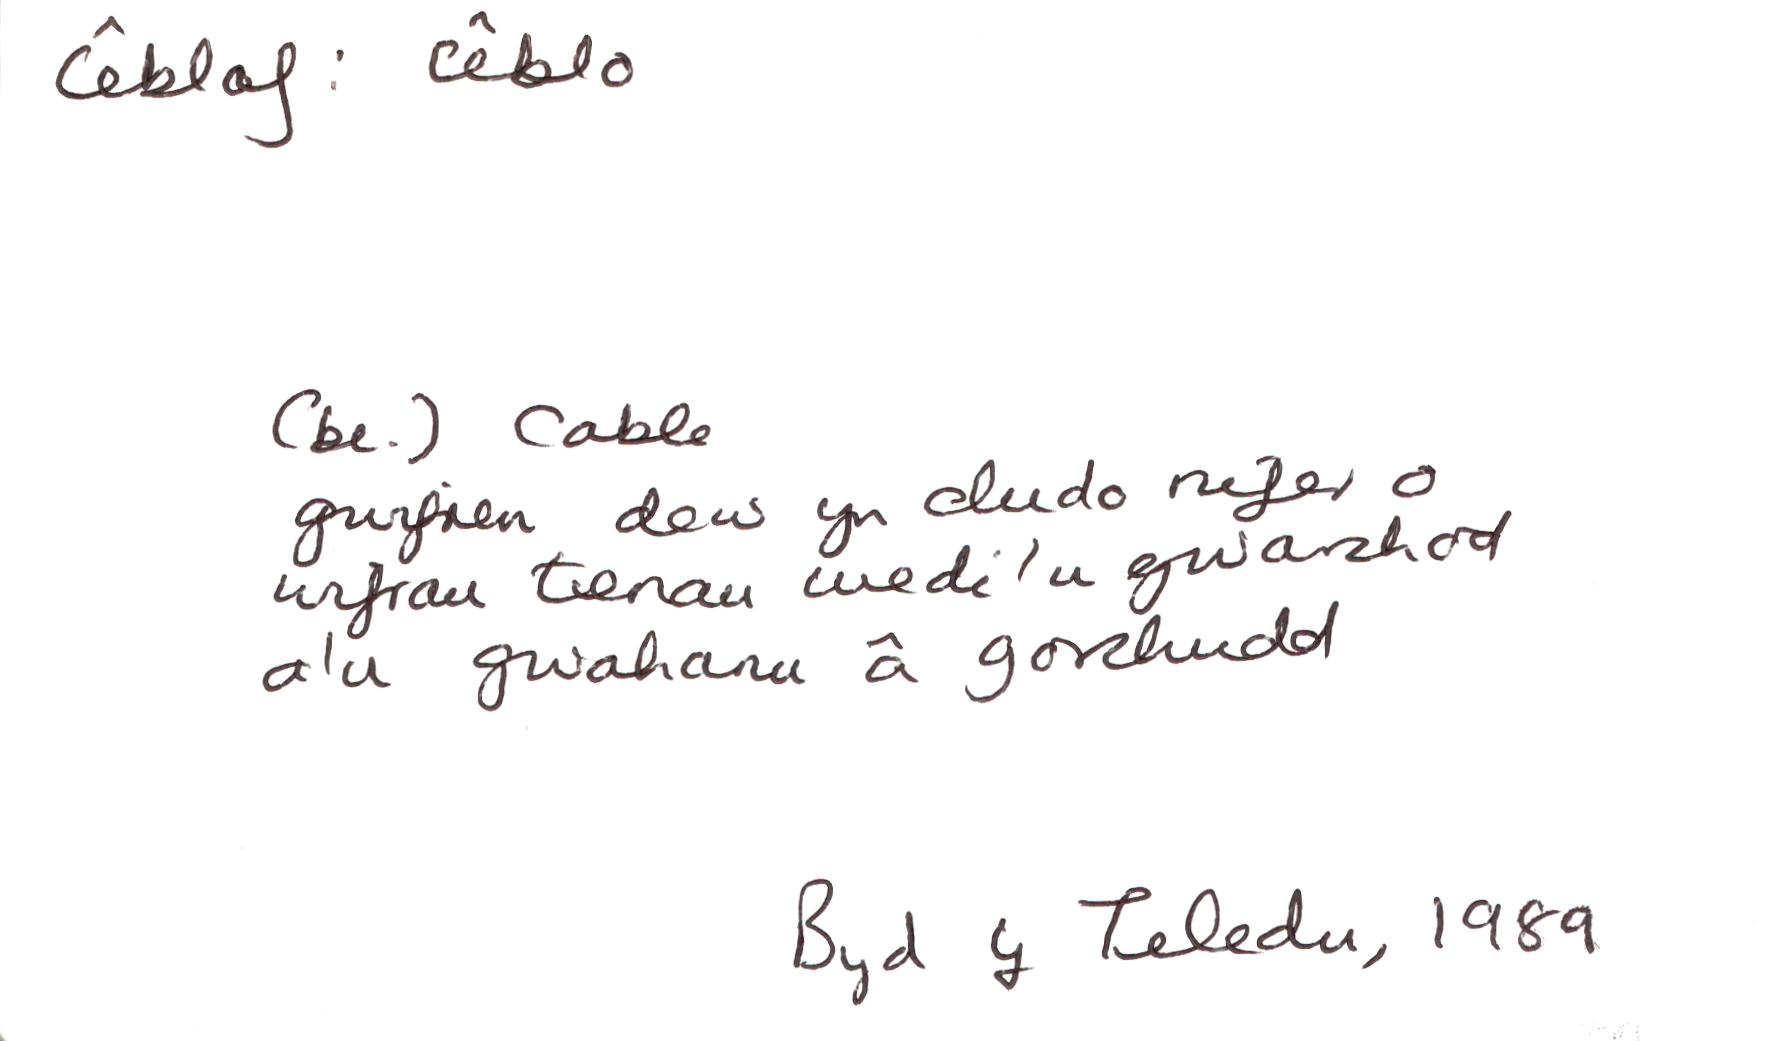 cêblaf: cêblo
(be.) Cable
gwifren dew yn cludo nifer o
wifrau tenau wedi'u gwarchod
a'u gwahanu â gorchudd
Byd y Teledu, 1989